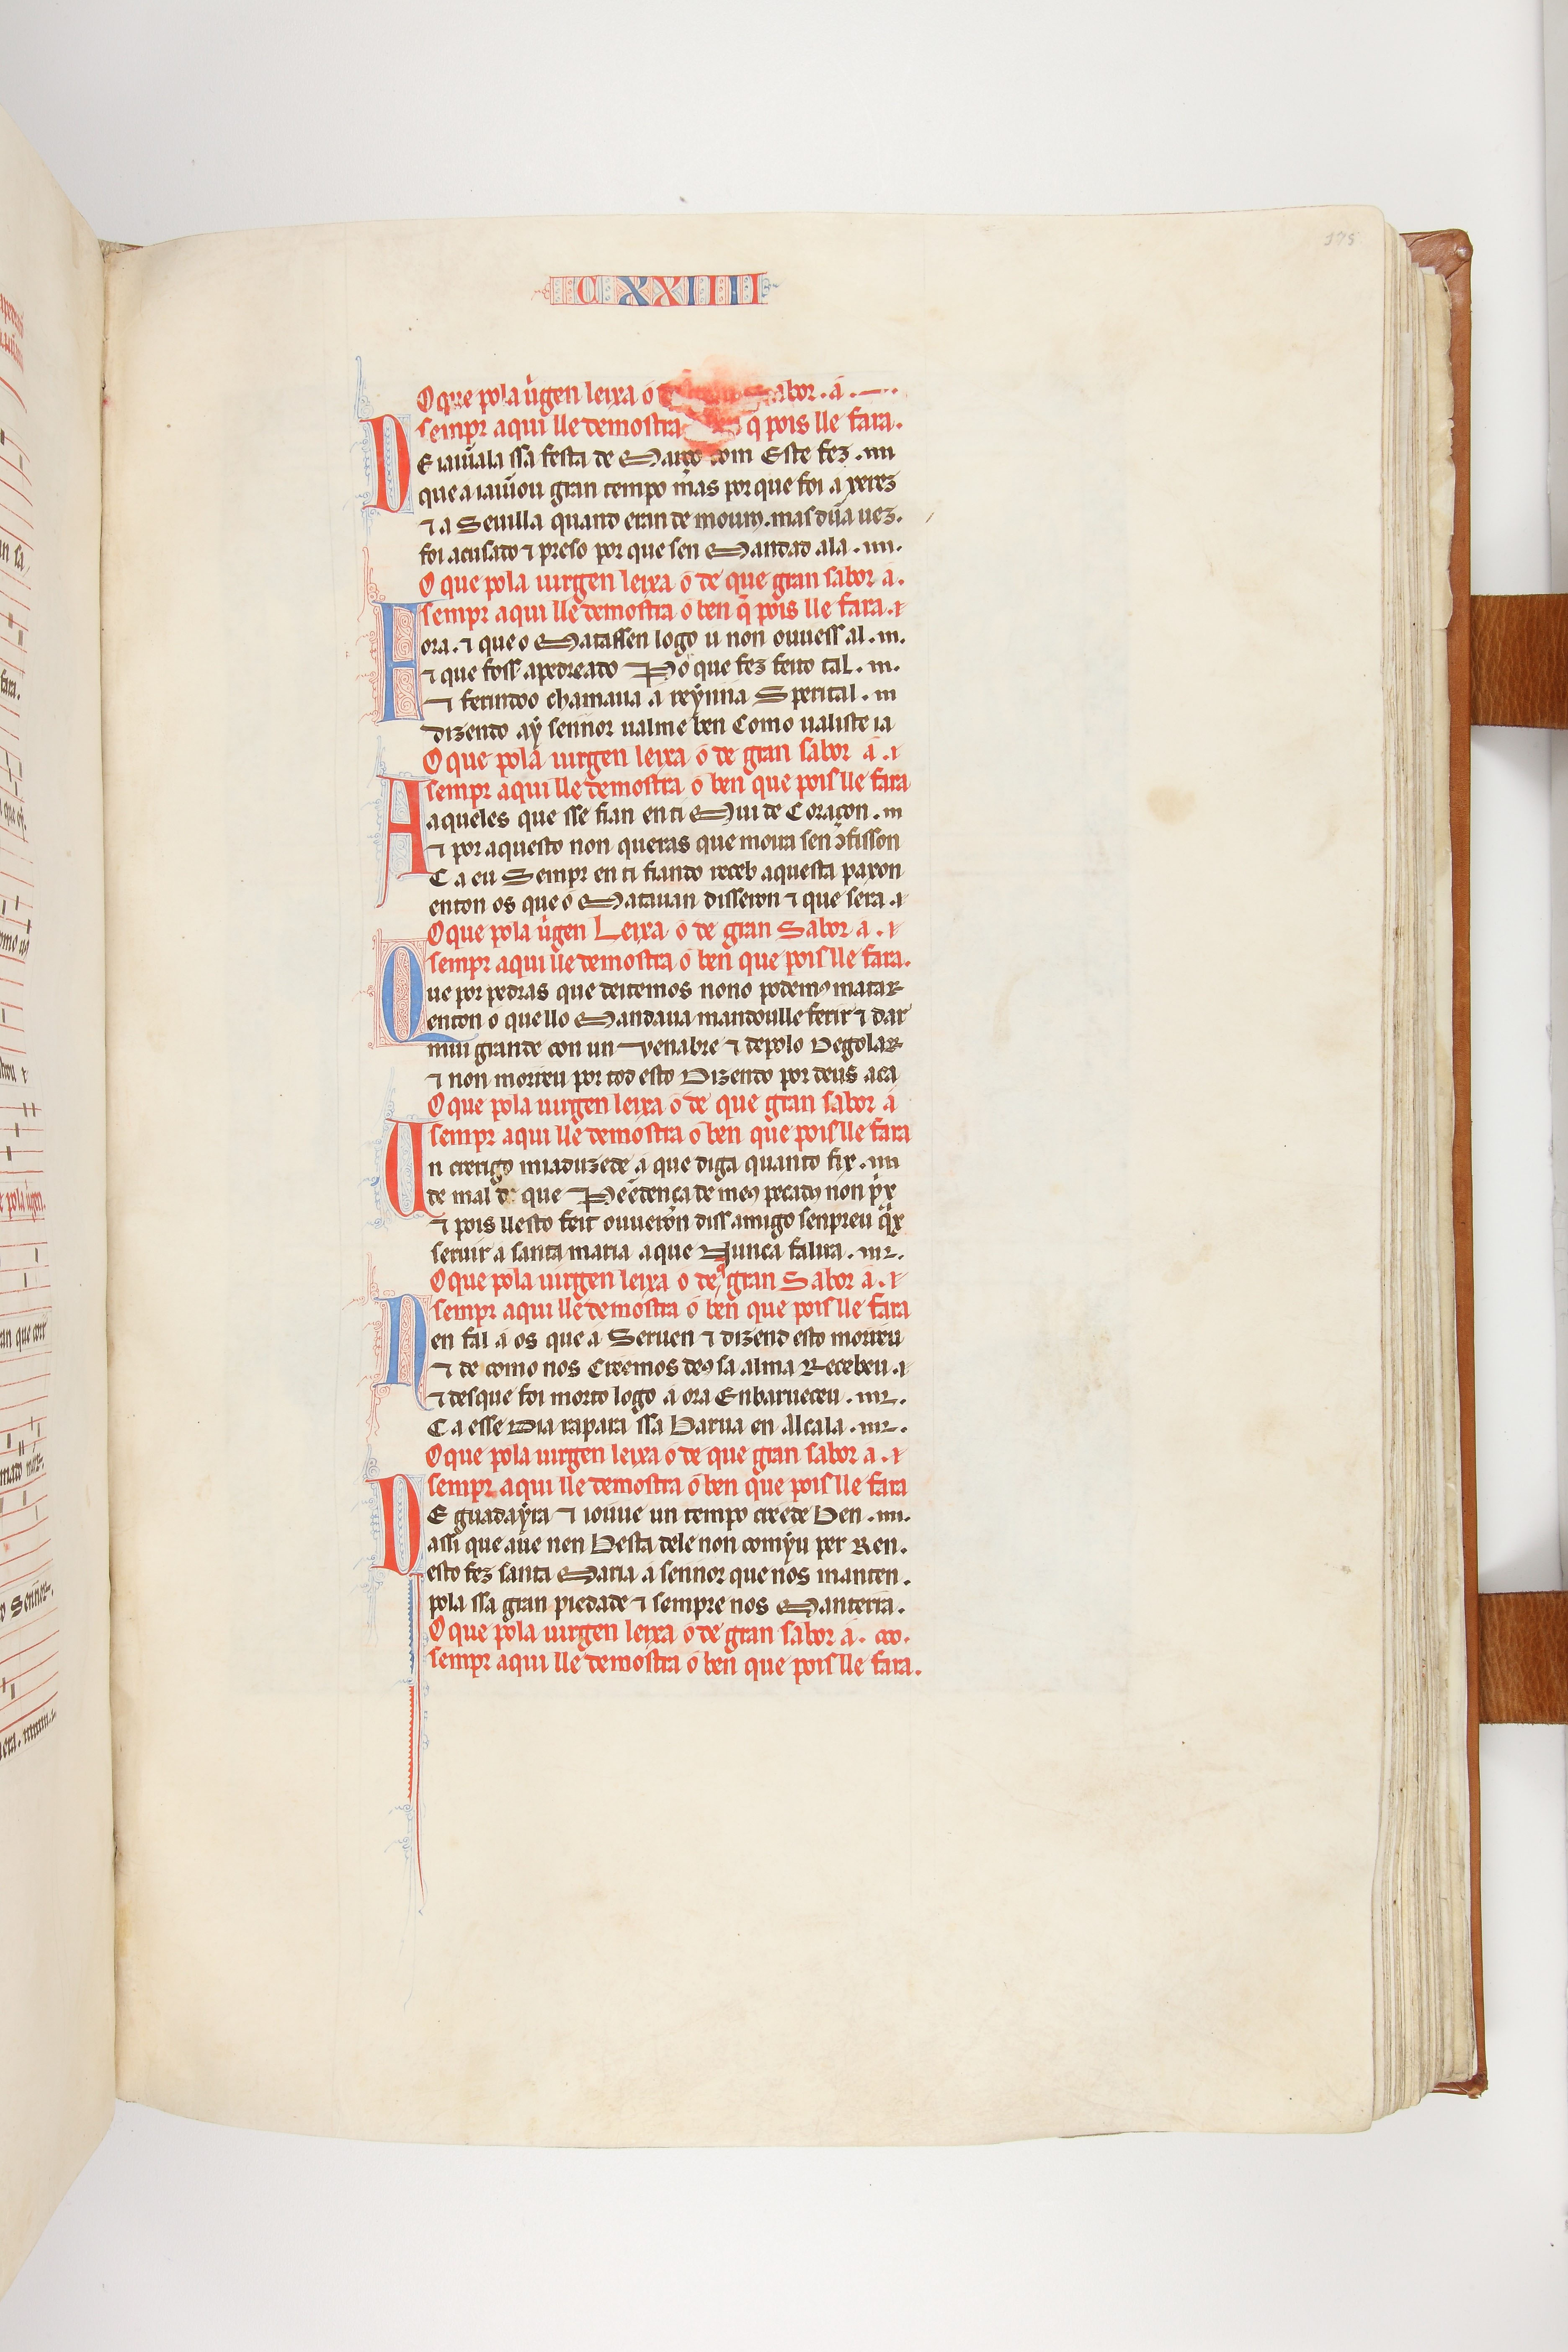 375
C XXIIII
O que pola uirgen leixa o abor . á .
sempr aqui lle demostra q̄ pois lle fara .
DE iaiũala ssa festa de Março com Este fez . m
que a iaiũou gran tempo mas por que foi a xerez
⁊ a Seuilla quand eran de mouros . mas dũa uez .
foi acusado ⁊ preso por que sen Mandad ala . m .
O que pola uirgen leixa ó de que gran sabor á .
sempr aqui lle demostra o ben q̄ pois lle fara .
Fora . ⁊ que o Matassen logo u non ouuess al . m .
⁊ que foss apedreado Po que fez feito tal . m .
⁊ ferindoo chamaua á reỹnna Sperital . m
dizendo aẏ sennor ualme ben Como ualiste ia
O que pola uirgen leixa ó de gran sabor á .
sempr aqui lle demostra o ben que pois lle fara
Aaqueles que sse fian en ti Mui de Coraçon . m
⁊ por aquesto non queras que moira sen ꝯfisson
Ca eu Sempr en ti fiando receb aquesta paxon
enton os que ó Matauan disseron ⁊ que sera .
O que pola uirgen Leixa o de gran Sabor a .
sempr aqui lle demostra ó ben que pois lle fara .
Que por pedras que deitemos nono podemos matar
enton o que llo Mandaua mandoulle ferir ⁊ dar
mui grande con un venabre ⁊ depolo Degolar
⁊ non morreu por tod esto Dizendo por deus aca
O que pola uirgen leixa ó de que gran sabor á
sempr aqui lle demostra ó ben que pois lle fara
Un crerigo miaduzede á que diga quanto fix . m
de mal de que Pẽedença de meos pecados non prix
⁊ pois llesto feit ouueron diss amigo senpreu q̄ix
seruir a santa maria aque Nunca falira . m .
O que pola uirgen leixa o de q gran Sabor á .
sempr aqui lle demostra o ben que pois lle fara
Nen fal á os que á Seruen ⁊ dizend esto morreu
⁊ de como nos Creemos deos sa alma Recebeu .
⁊ desque foi morto logo á ora Enbarueceu . m .
Ca esse Dia rapara ssa Barua en Alcala . m .
O que pola uirgen leixa o de que gran sabor a .
sempr aqui lle demostra ó ben que pois lle fara
DE guadaẏra ⁊ iouue un tempo creede Ben . m .
assi que aue nen Besta dele non comẏu per Ren .
esto fez santa Maria á sennor que nos manten .
pola ssa gran piedade ⁊ sempre nos Manterra .
O que pola uirgen leixa ó de gran sabor á .
sempr aqui lle demostra ó ben que pois lle fara .